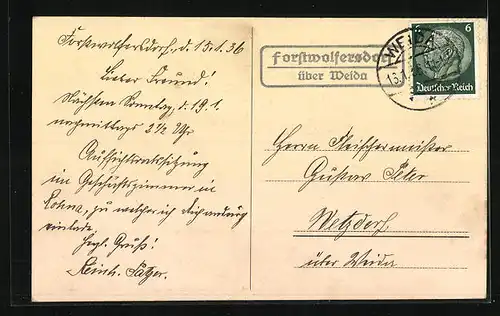 Forstwolfersdorf, d. 15.1.36
Lieber Freund!
Nächsten Sonntag, d. 19.1.
nachmittags 2½ Uhr
Aufsichtsratssitzung
im Geschäftszimmer in
zu welcher ich dich
einlade.
Hrzl. Gruß!
Reinh.
Forstwolfersdorf
über Weida
WEIDA
6
Deutsches Reich
Herrn Fleischermeister
Gustav Peter
Wetzdorf
über Weida